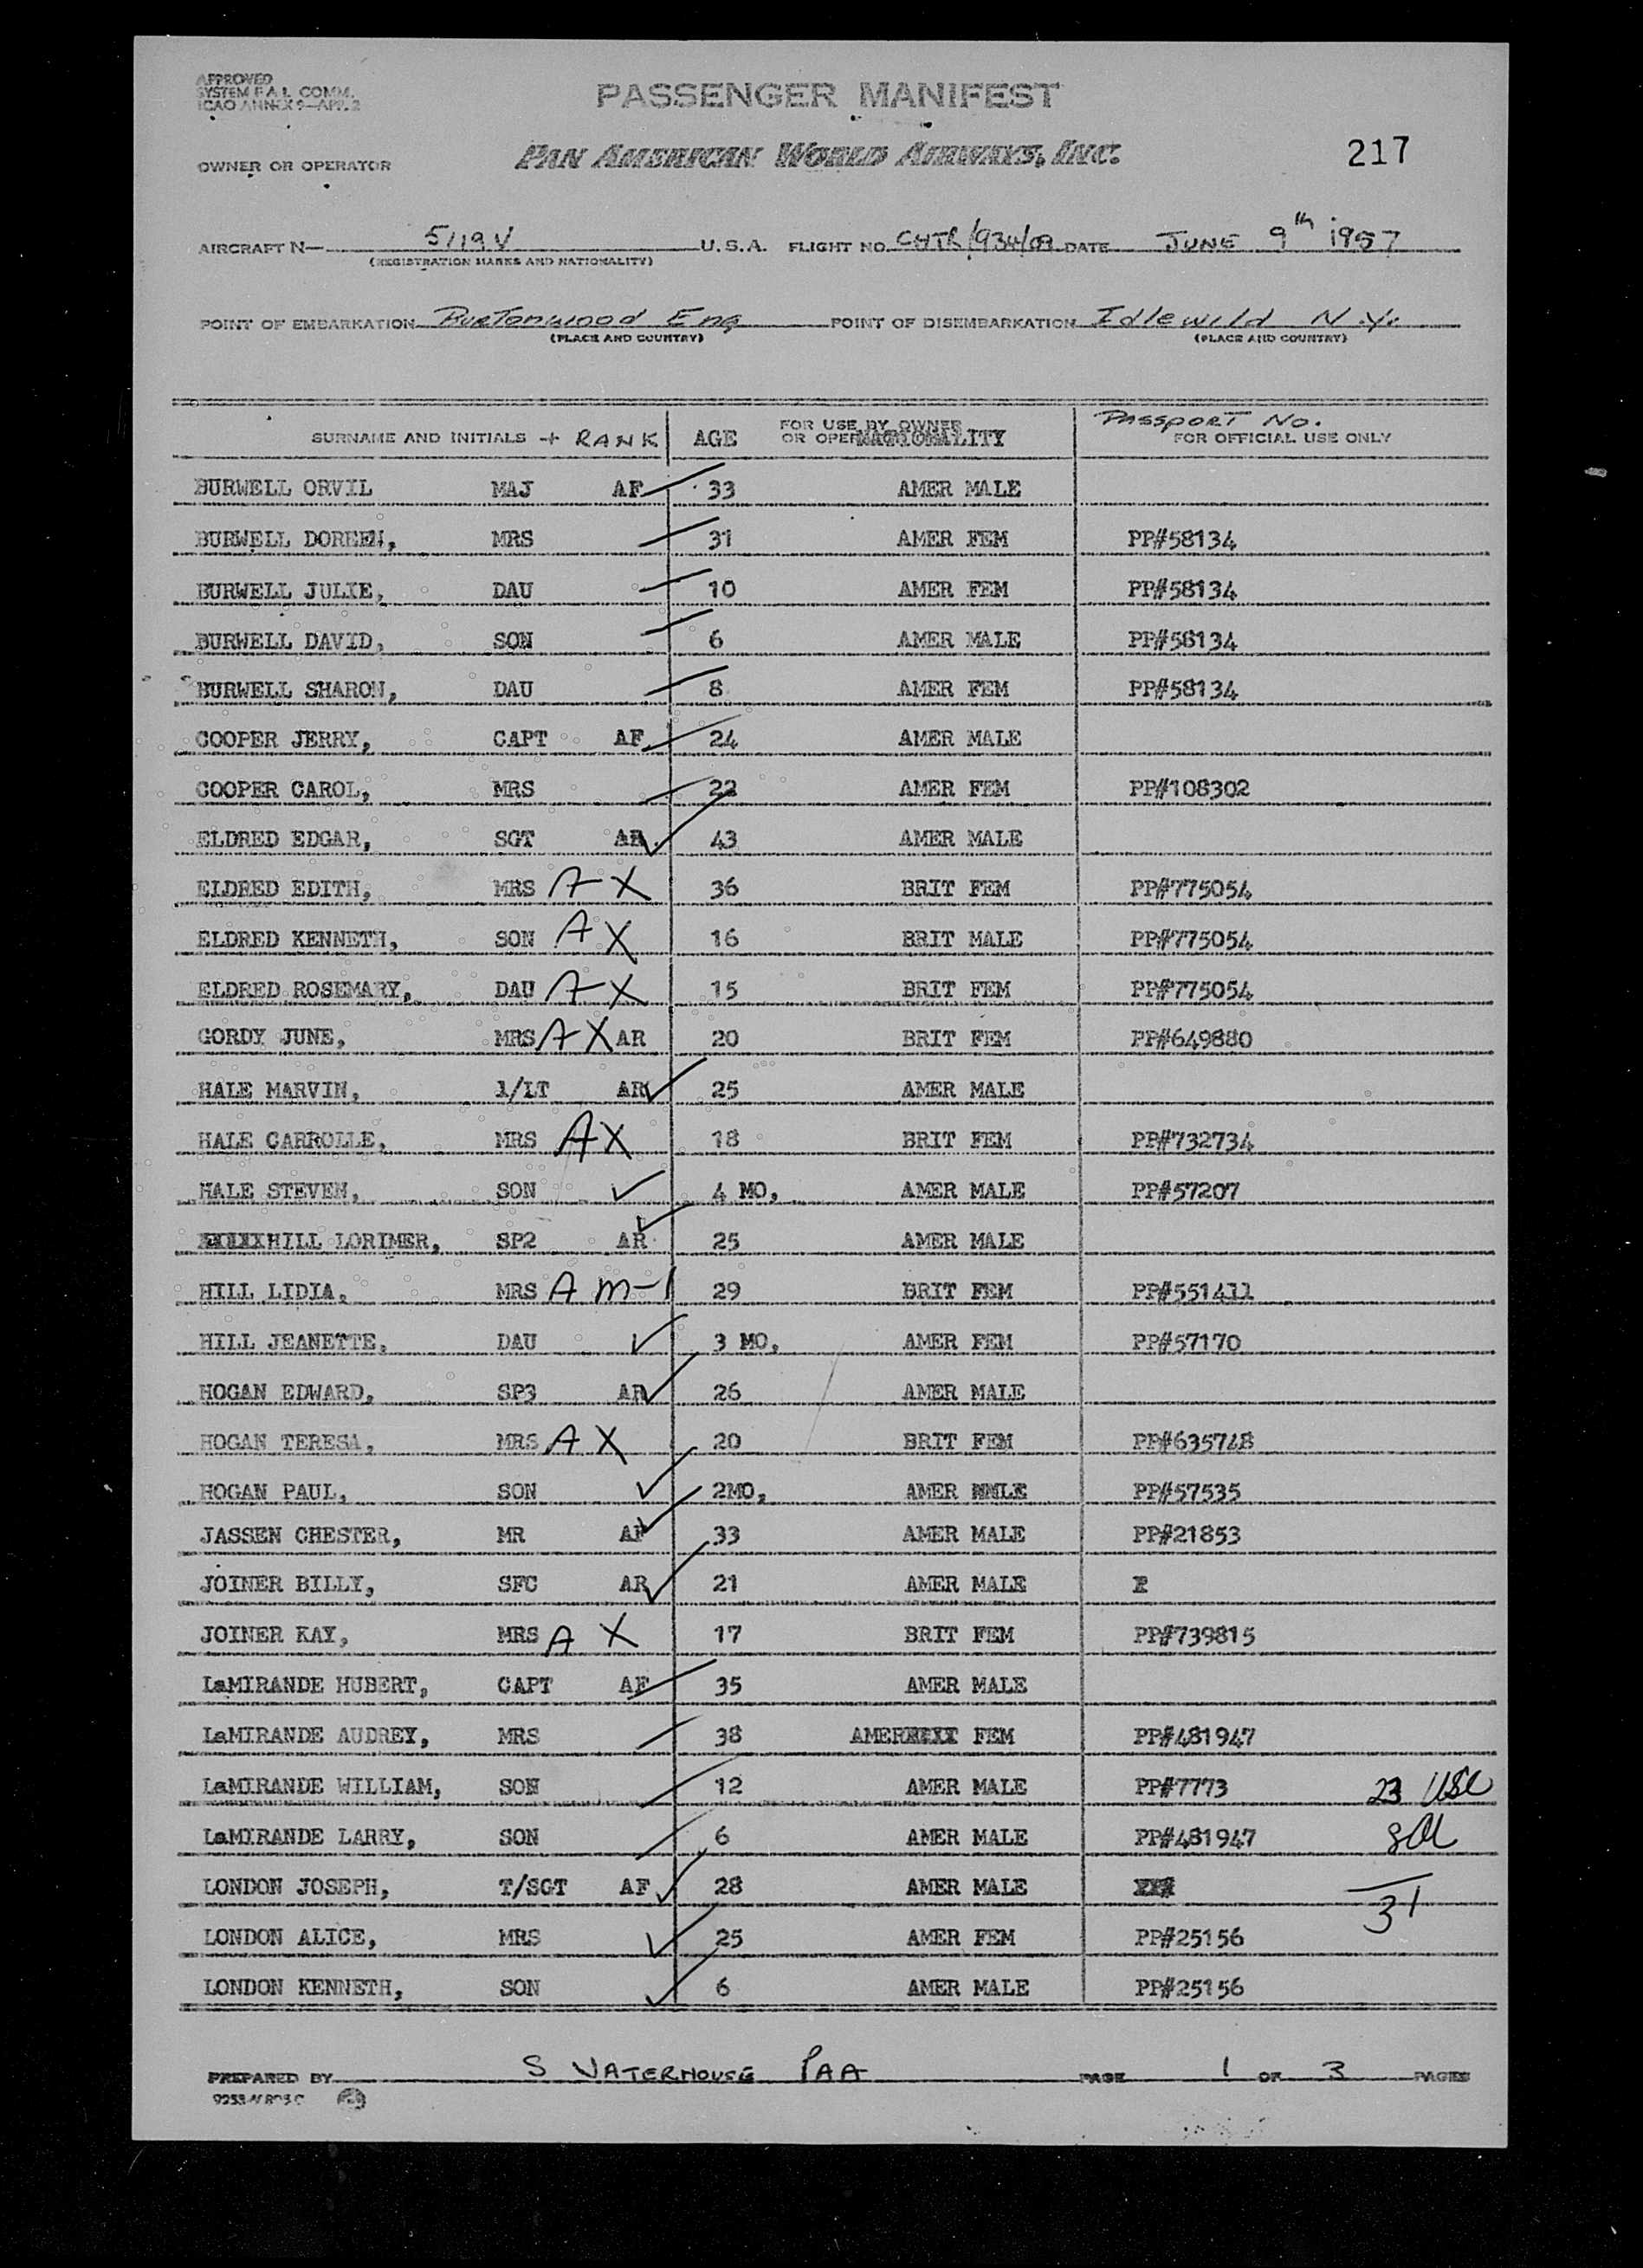 APPROVED
SYSTEM F.A.L. COMM.
ICAO ANNEX 9—APP. 2
PASSENGER MANIFEST
OWNER OR OPERATOR PAN AMERICAN WORLD AIRWAYS, INC. 217
AIRCRAFT N— 5119V U.S.A. FLIGHT NO. CHTR/934/09 DATE JUNE 9th 1957
(REGISTRATION MARKS AND NATIONALITY)
POINT OF EMBARKATION Burtonwood Eng POINT OF DISEMBARKATION Idlewild N.Y.
(PLACE AND COUNTRY) (PLACE AND COUNTRY)
SURNAME AND INITIALS + RANK AGE FOR USE BY OWNER OR OPERATOR NATIONALITY PASSPORT NO. FOR OFFICIAL USE ONLY
BURWELL ORVIL MAJ AF 33 AMER MALE
BURWELL DOREEN, MRS 31 AMER FEM PP#58134
BURWELL JULIE, DAU 10 AMER FEM PP#58134
BURWELL DAVID, SON 6 AMER MALE PP#58134
BURWELL SHARON, DAU 8 AMER FEM PP#58134
COOPER JERRY, CAPT AF 24 AMER MALE
COOPER CAROL, MRS 22 AMER FEM PP#108302
ELDRED EDGAR, SGT AR 43 AMER MALE
ELDRED EDITH, MRS A X 36 BRIT FEM PP#775054
ELDRED KENNETH, SON A X 16 BRIT MALE PP#775054
ELDRED ROSEMARY, DAU A X 15 BRIT FEM PP#775054
GORDY JUNE, MRS A X AR 20 BRIT FEM PP#649880
HALE MARVIN, 1/LT AR 25 AMER MALE
HALE CARROLLE, MRS A X 18 BRIT FEM PP#732734
HALE STEVEN, SON 4 MO, AMER MALE PP#57207
HILL LORIMER, SP2 AR 25 AMER MALE
HILL LIDIA, MRS A M-1 29 BRIT FEM PP#551411
HILL JEANETTE, DAU 3 MO, AMER FEM PP#57170
HOGAN EDWARD, SP3 AR 26 AMER MALE
HOGAN TERESA, MRS A X 20 BRIT FEM PP#635748
HOGAN PAUL, SON 2MO, AMER MMLE PP#57535
JASSEN CHESTER, MR AF 33 AMER MALE PP#21853
JOINER BILLY, SFC AR 21 AMER MALE
JOINER KAY, MRS A X 17 BRIT FEM PP#739815
LaMIRANDE HUBERT, CAPT AF 35 AMER MALE
LaMIRANDE AUDREY, MRS 38 AMER FEM PP#481947
LaMIRANDE WILLIAM, SON 12 AMER MALE PP#7773 23 USC
LaMIRANDE LARRY, SON 6 AMER MALE PP#481947
LONDON JOSEPH, T/SGT AF 28 AMER MALE 31
LONDON ALICE, MRS 25 AMER FEM PP#25156
LONDON KENNETH, SON 6 AMER MALE PP#25156
PREPARED BY S WATERHOUSE PAA PAGE 1 OF 3 PAGES